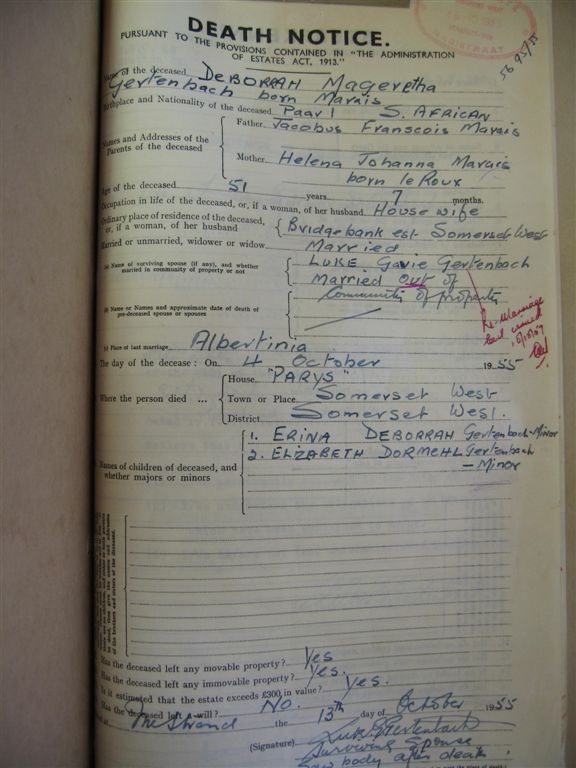 DEATH NOTICE.
PURSUANT TO THE PROVISIONS CONTAINED IN "THE ADMINISTRATION
OF ESTATES ACT, 1913."
5693/55
Name of the deceased DEBORRAH Mageretha
Gertenbach born Marais
Birthplace and Nationality of the deceased Paarl S. AFRICAN
Names and Addresses of the Parents of the deceased
Father Jacobus Franscois Marais
Mother Helena Johanna Marais
born le Roux
Age of the deceased 51 years 7 months.
Occupation in life of the deceased, or, if a woman, of her husband House wife
Ordinary place of residence of the deceased, or, if a woman, of her husband Bridgebank est Somerset West
Married or unmarried, widower or widow Married
(a) Name of surviving spouse (if any), and whether married in community of property or not
LUKE Gavie Gertenbach
Married out of
Community of property
(b) Name or Names and approximate date of death of pre-deceased spouse or spouses
(c) Place of last marriage Albertinia
The day of the decease: On 4 October 1955
Where the person died ...
House "PARYS"
Town or Place Somerset West
District Somerset West.
Names of children of deceased, and whether majors or minors
1. ERINA DEBORRAH Gertenbach-Minor
2. ELIZABETH DORMEHL Gertenbach
- Minor
Has the deceased left any movable property? Yes
Has the deceased left any immovable property? Yes.
Is it estimated that the estate exceeds £300 in value? Yes.
Has the deceased left a will? No.
at The Strand the 13th day of October 1955
(Signature) Gertenbach
Surviving Spouse
Saw body after death.